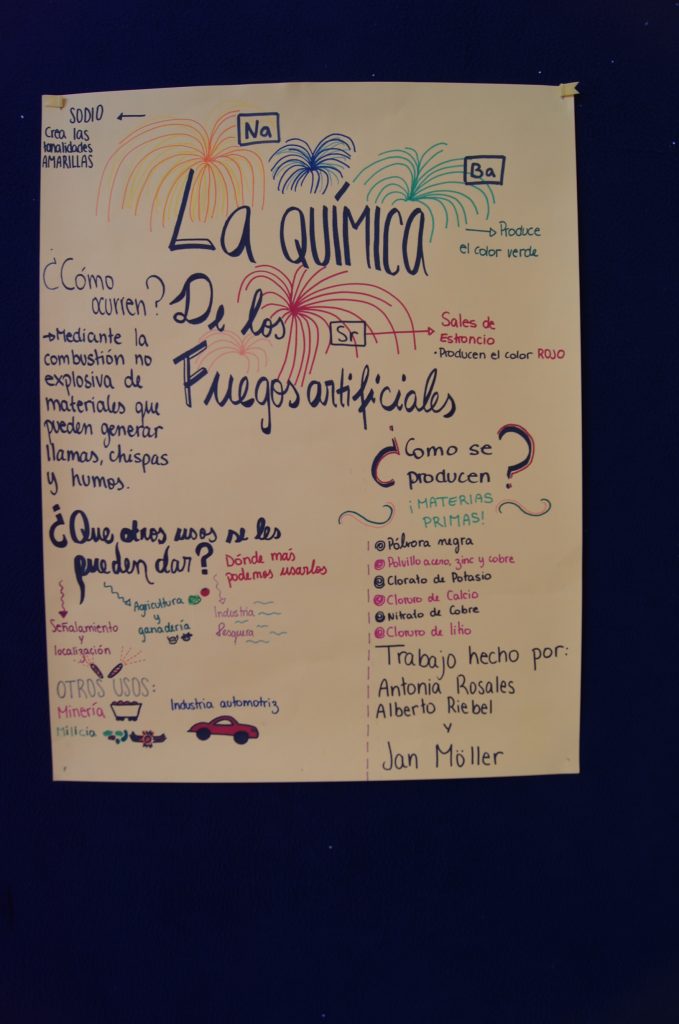 SODIO
Crea las
tonalidades
AMARILLAS
Na
Ba
Produce
el color verde
LA QUÍMICA
De los
Fuegos artificiales
Sr
Sales de
Estroncio
• Producen el color ROJO
¿Cómo
ocurren?
→Mediante la
combustión no
explosiva de
materiales que
pueden generar
llamas, chispas
y humos.
¿Como se
producen?
¡MATERIAS
PRIMAS!
Pólvora negra
Polvillo acero, zinc y cobre
Clorato de Potasio
Cloruro de Calcio
Nitrato de Cobre
Cloruro de litio
¿Que otros usos se les
pueden dar?
Dónde más
podemos usarlos
Señalamiento
y
localización
Agricultura
y
ganadería
Industria
Pesquera
OTROS USOS:
Minería
Milicia
Industria automotriz
Trabajo hecho por:
Antonia Rosales
Alberto Riebel
y
Jan Möller